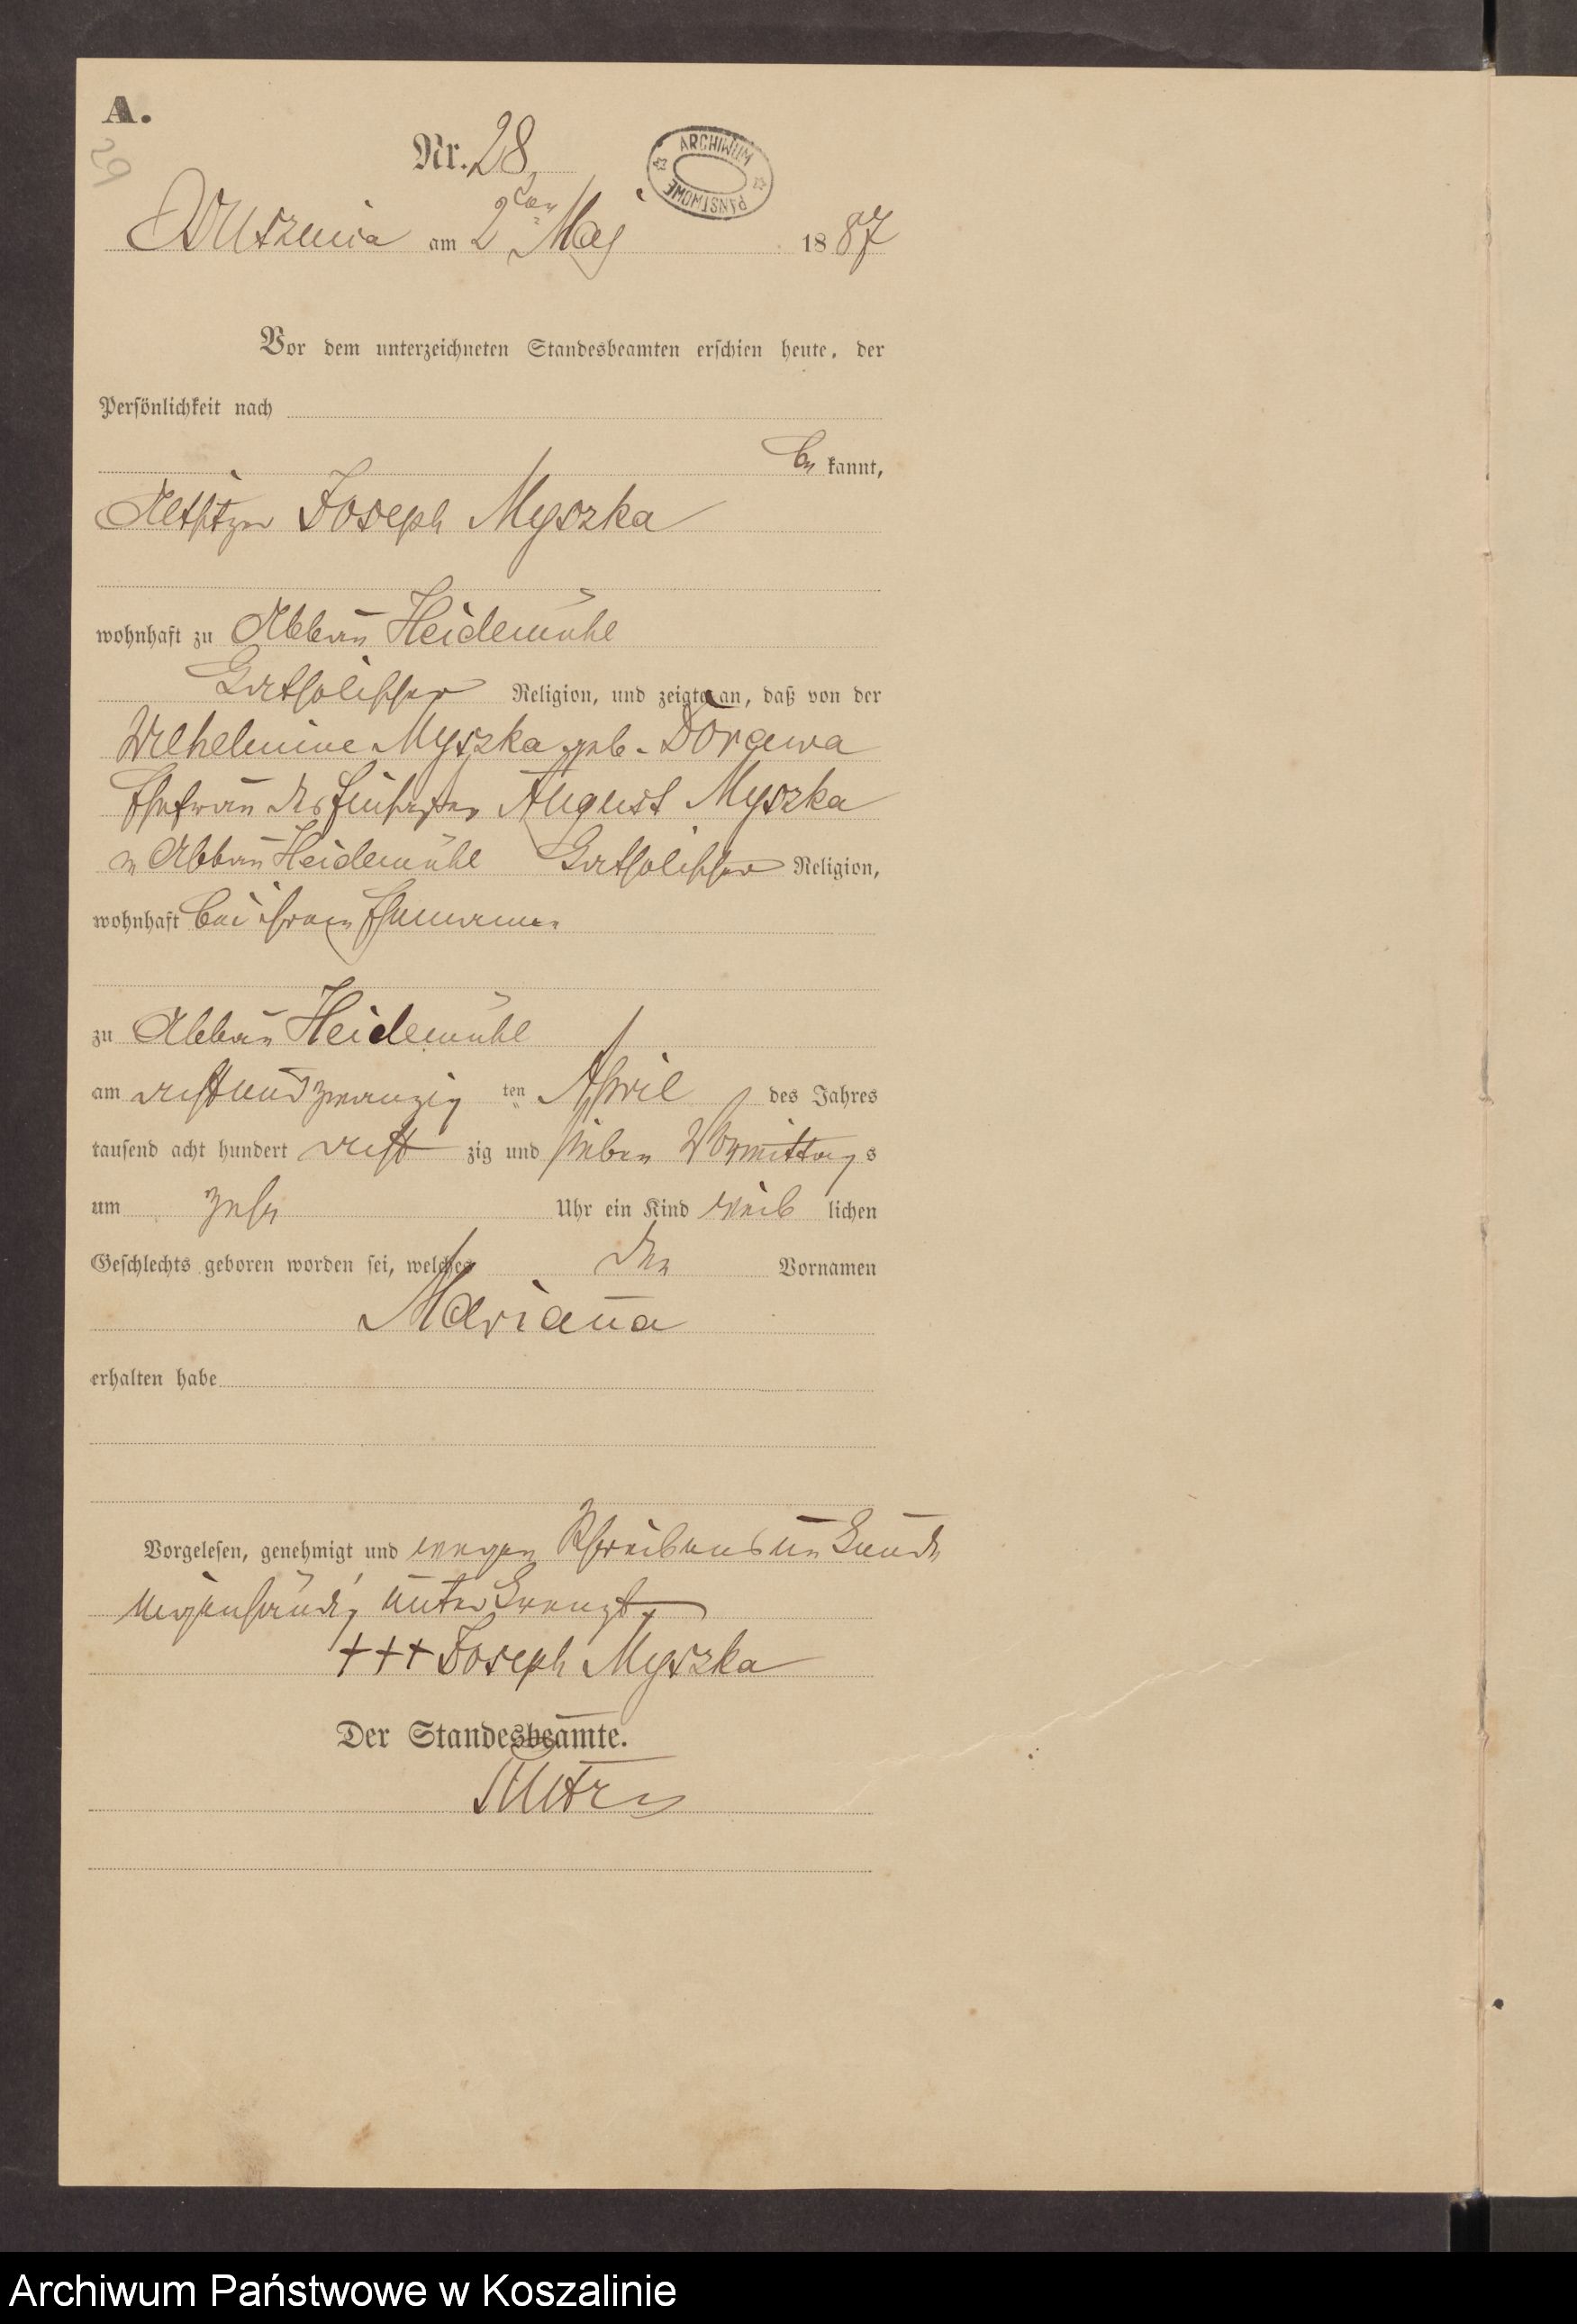 A.
29
Nr. 28.
Oslusznica am 2ten May 1887
ARCHIWUM PAŃSTWOWE
Vor dem unterzeichneten Standesbeamten erschien heute, der
Persönlichkeit nach
be kannt,
Altsitzer Joseph Myszka
wohnhaft zu Abbau Heidemühl
Katholischer Religion, und zeigte an, daß von der
Wilhelmine Myszka geb. Dorawa
Ehefrau des August Myszka
in Abbau Heidemühl Katholischer Religion,
wohnhaft bei ihrem Ehemanne
zu Abbau Heidemühl
am acht und zwanzig ten April des Jahres
tausend acht hundert acht zig und sieben Vormittag s
um zehn Uhr ein Kind weib lichen
Geschlechts geboren worden sei, welches den Vornamen
Mariana
erhalten habe
Vorgelesen, genehmigt und wegen Schreibensunkunde
eigenhändig unterkreuzt
+++ Joseph Myszka
Der Standesbeamte.
Archiwum Państwowe w Koszalinie